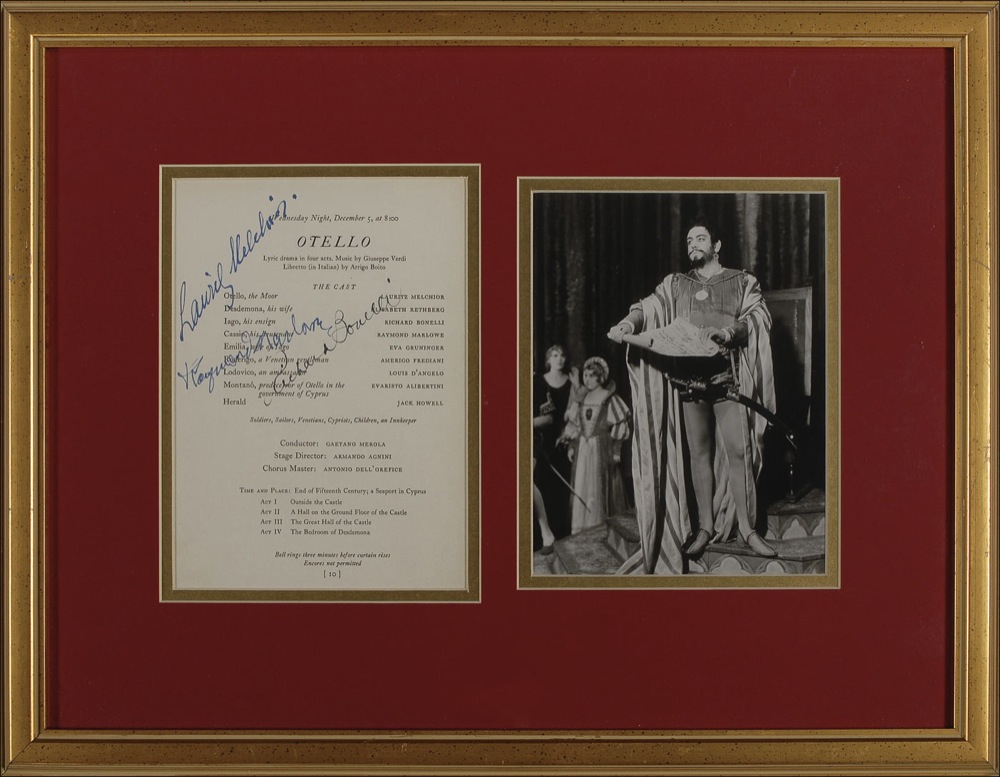 Wednesday Night, December 5, at 8:00
OTELLO
Lyric drama in four acts. Music by Giuseppe Verdi
Libretto (in Italian) by Arrigo Boito
THE CAST
Otello, the Moor LAURITZ MELCHIOR
Desdemona, his wife ELISABETH RETHBERG
Iago, his ensign RICHARD BONELLI
Cassio, his lieutenant RAYMOND MARLOWE
Emilia, wife of Iago EVA GRUNINGER
Roderigo, a Venetian gentleman AMERIGO FREDIANI
Lodovico, an ambassador LOUIS D'ANGELO
Montano, predecessor of Otello in the EVARISTO ALIBERTINI
government of Cyprus
Herald JACK HOWELL
Soldiers, Sailors, Venetians, Cypriots, Children, an Innkeeper
Conductor: GAETANO MEROLA
Stage Director: ARMANDO AGNINI
Chorus Master: ANTONIO DELL'OREFICE
TIME AND PLACE: End of Fifteenth Century; a Seaport in Cyprus
ACT I Outside the Castle
ACT II A Hall on the Ground Floor of the Castle
ACT III The Great Hall of the Castle
ACT IV The Bedroom of Desdemona
Bell rings three minutes before curtain rises
Encores not permitted
[ 10 ]
Lauritz Melchior
Raymond Marlowe
Richard Bonelli